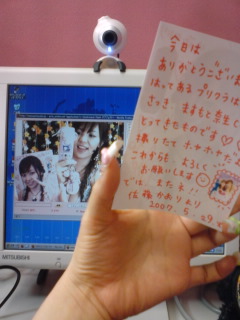 今日は
ありがとうございま
はってあるプリクラは
さっき ますもと先生と
とってきたものです♡
撮りたてホヤホヤだ
これからも よろしく
お願いします
では またネ!!
佐藤かおりより
2007. 5. 29
MITSUBISHI